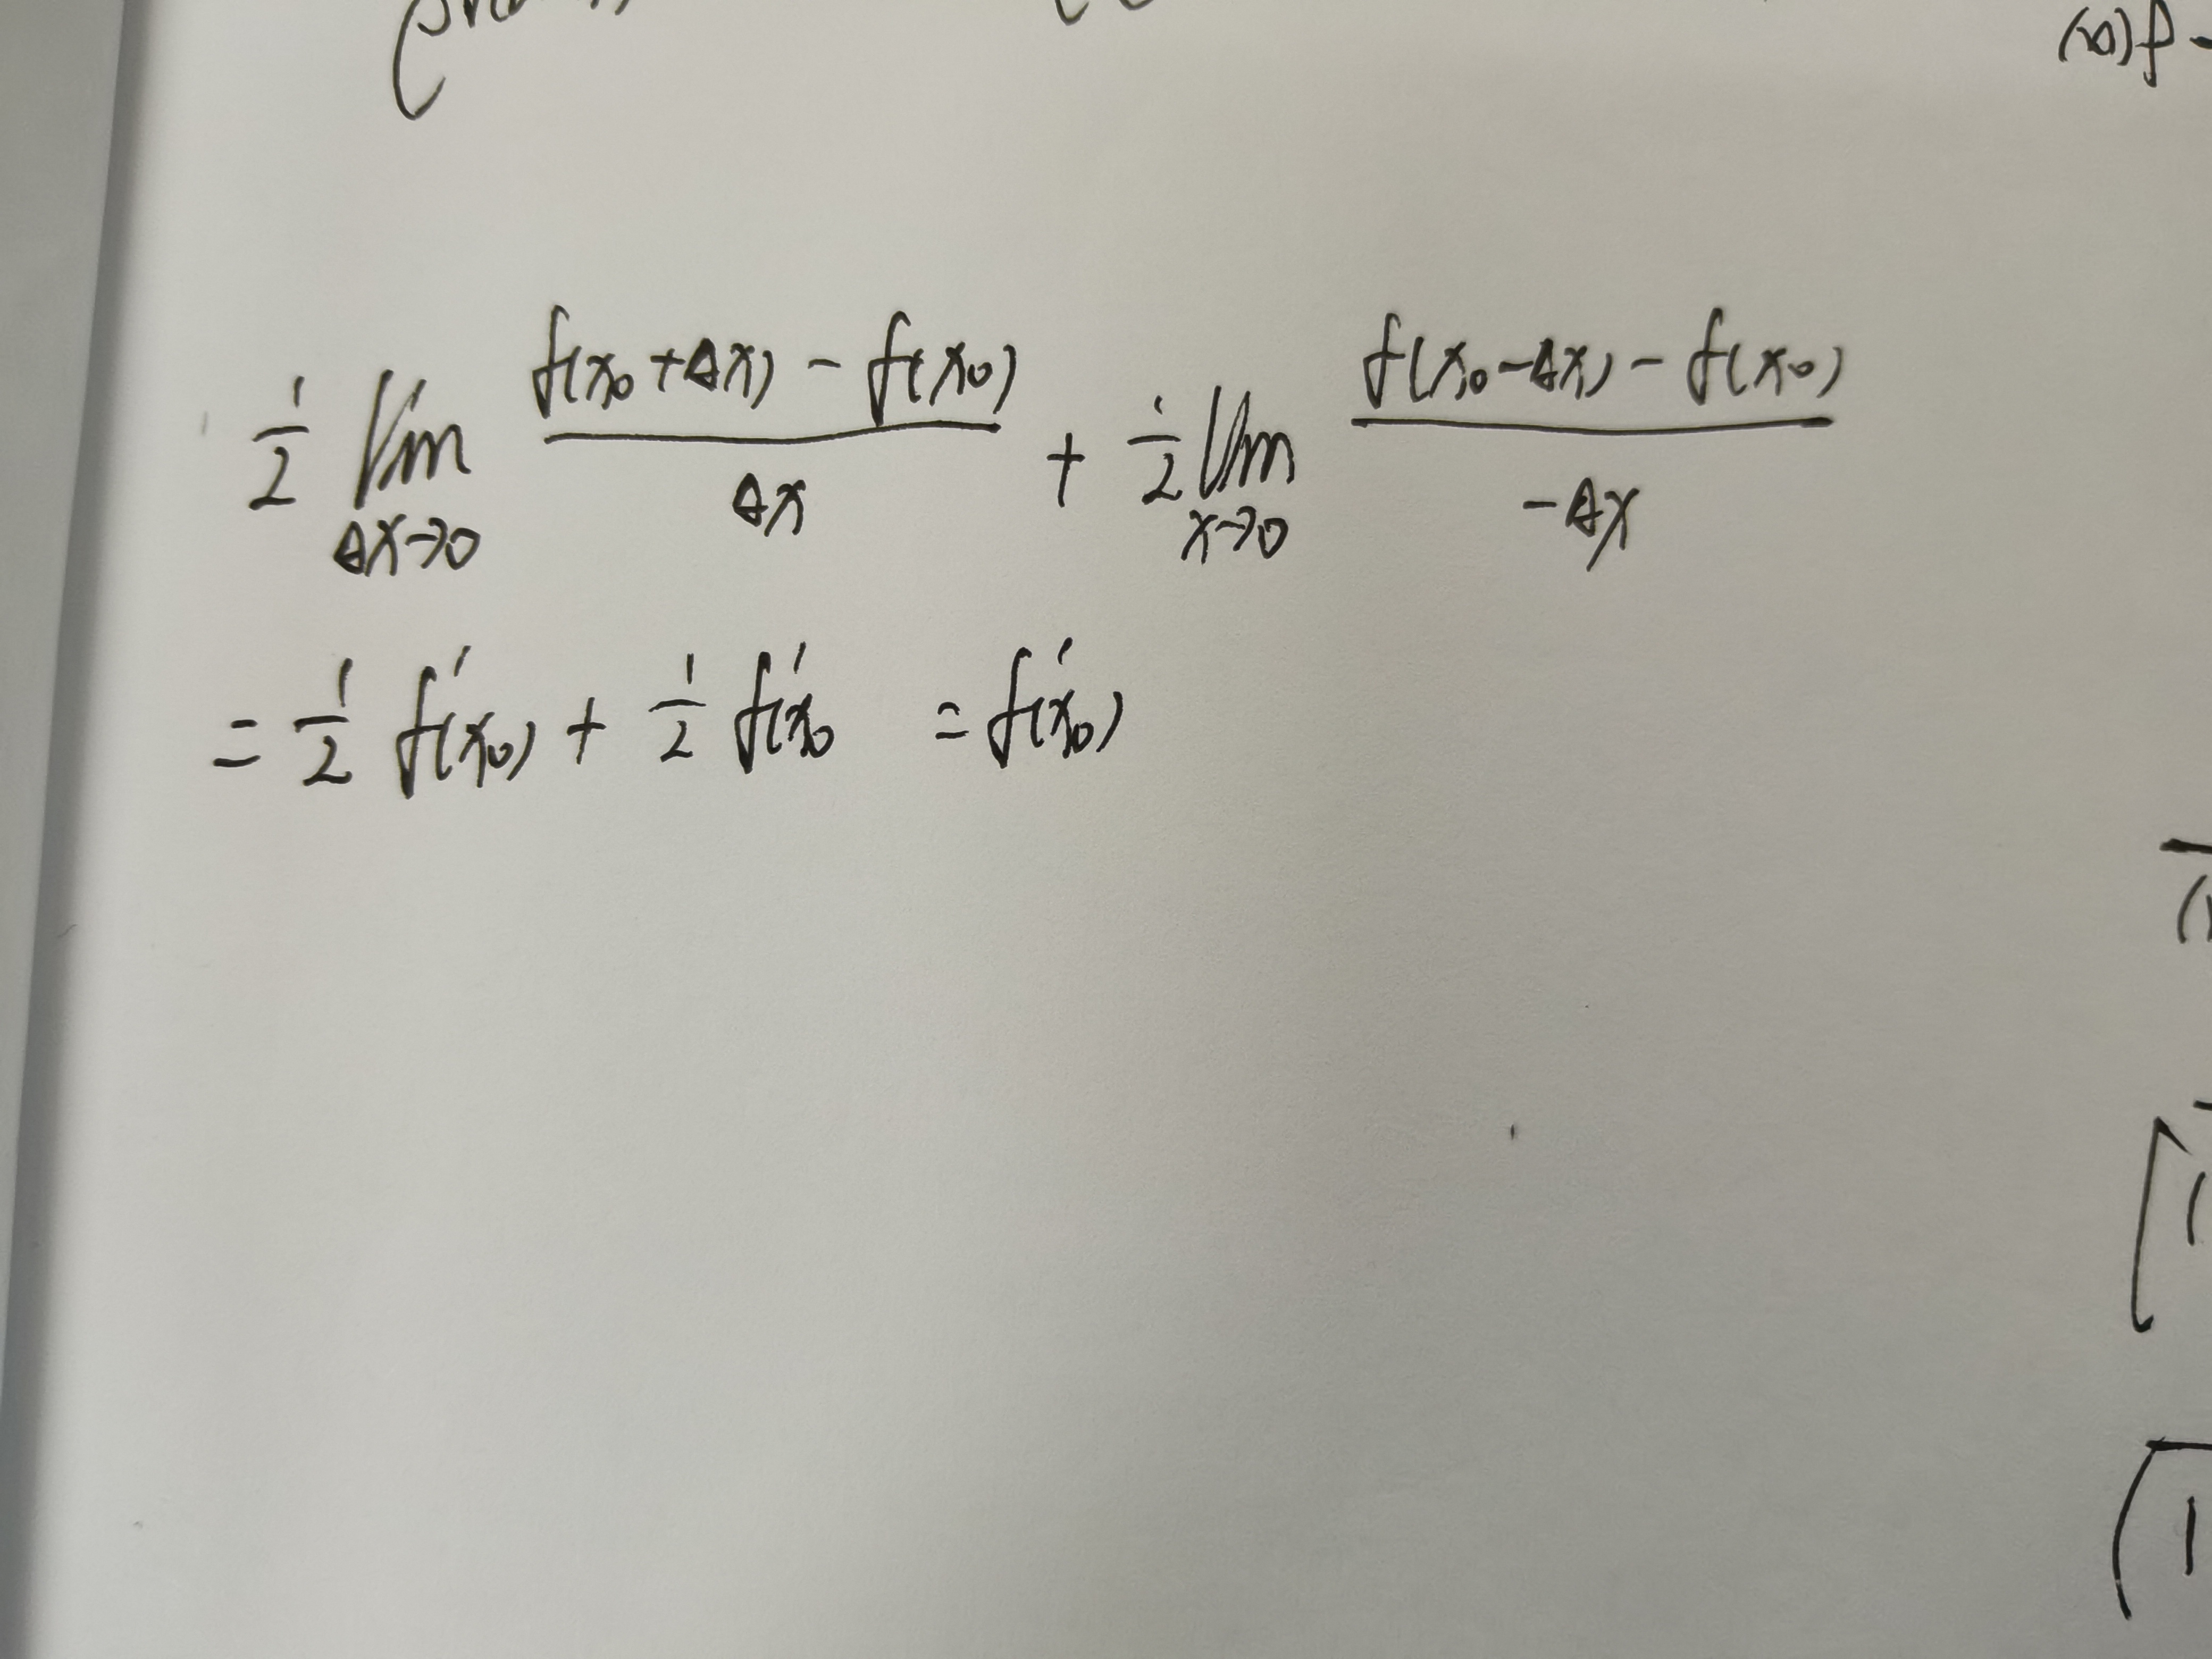 1/2 lim_{Δx→0} (f(x₀+Δx) - f(x₀))/Δx + 1/2 lim_{x→0} (f(x₀-Δx) - f(x₀))/(-Δx)
= 1/2 f'(x₀) + 1/2 f'(x₀ = f'(x₀)